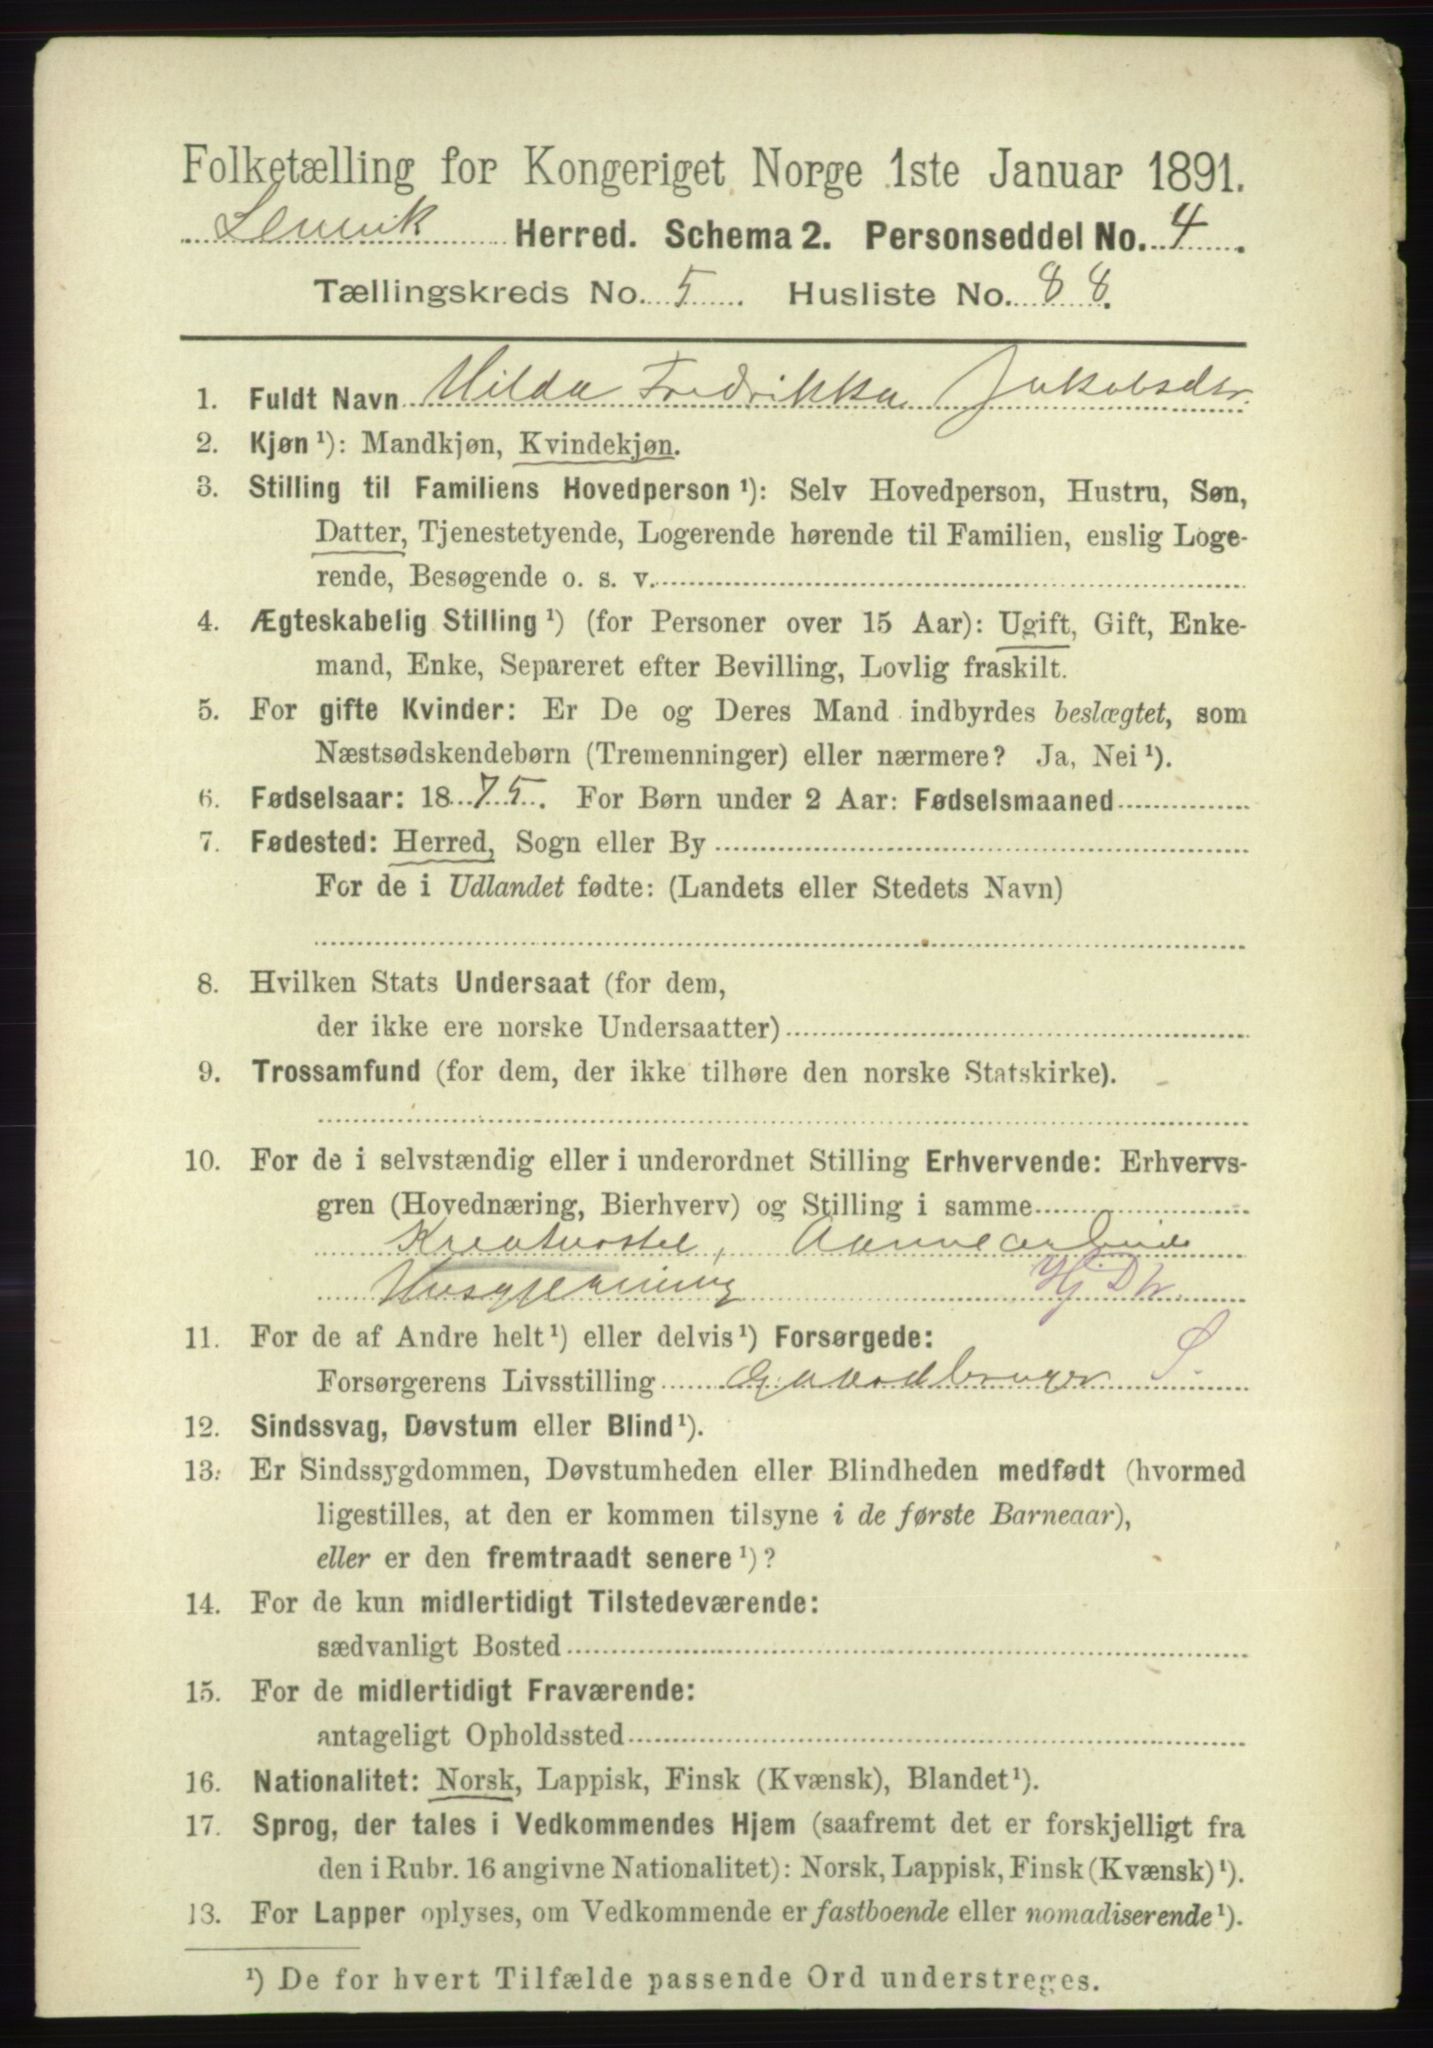 Folketælling for Kongeriget Norge 1ste Januar 1891.
Lenvik Herred. Schema 2. Personseddel No. 4.
Tællingskreds No. 5. Husliste No. 88.
1. Fuldt Navn Hilda Fredrikka Jakobsdtr.
2. Kjøn ¹): Mandkjøn, Kvindekjøn.
3. Stilling til Familiens Hovedperson ¹): Selv Hovedperson, Hustru, Søn,
Datter, Tjenestetyende, Logerende hørende til Familien, enslig Loge-
rende, Besøgende o. s. v.
4. Ægteskabelig Stilling ¹) (for Personer over 15 Aar): Ugift, Gift, Enke-
mand, Enke, Separeret efter Bevilling, Lovlig fraskilt.
5. For gifte Kvinder: Er De og Deres Mand indbyrdes beslægtet, som
Næstsødskendebørn (Tremenninger) eller nærmere? Ja, Nei ¹).
6. Fødselsaar: 1875. For Børn under 2 Aar: Fødselsmaaned
7. Fødested: Herred, Sogn eller By
For de i Udlandet fødte: (Landets eller Stedets Navn)
8. Hvilken Stats Undersaat (for dem,
der ikke ere norske Undersaatter)
9. Trossamfund (for dem, der ikke tilhøre den norske Statskirke).
10. For de i selvstændig eller i underordnet Stilling Erhvervende: Erhvervs-
gren (Hovednæring, Bierhverv) og Stilling i samme
Kreaturstel,
Husgjerning
11. For de af Andre helt ¹) eller delvis ¹) Forsørgede:
Forsørgerens Livsstilling Gaardbruger S.
12. Sindssvag, Døvstum eller Blind ¹).
13. Er Sindssygdommen, Døvstumheden eller Blindheden medfødt (hvormed
ligestilles, at den er kommen tilsyne i de første Barneaar),
eller er den fremtraadt senere ¹)?
14. For de kun midlertidigt Tilstedeværende:
sædvanligt Bosted
15. For de midlertidigt Fraværende:
antageligt Opholdssted
16. Nationalitet: Norsk, Lappisk, Finsk (Kvænsk), Blandet ¹).
17. Sprog, der tales i Vedkommendes Hjem (saafremt det er forskjelligt fra
den i Rubr. 16 angivne Nationalitet): Norsk, Lappisk, Finsk (Kvænsk) ¹).
13. For Lapper oplyses, om Vedkommende er fastboende eller nomadiserende ¹).
¹) De for hvert Tilfælde passende Ord understreges.